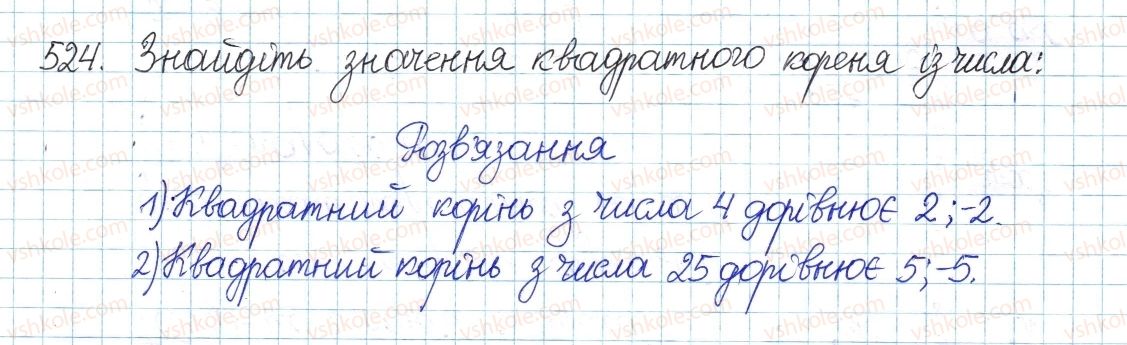 524. Знайдіть значення квадратного кореня із числа:
Розв'язання
1) Квадратний корінь з числа 4 дорівнює 2; -2.
2) Квадратний корінь з числа 25 дорівнює 5; -5.